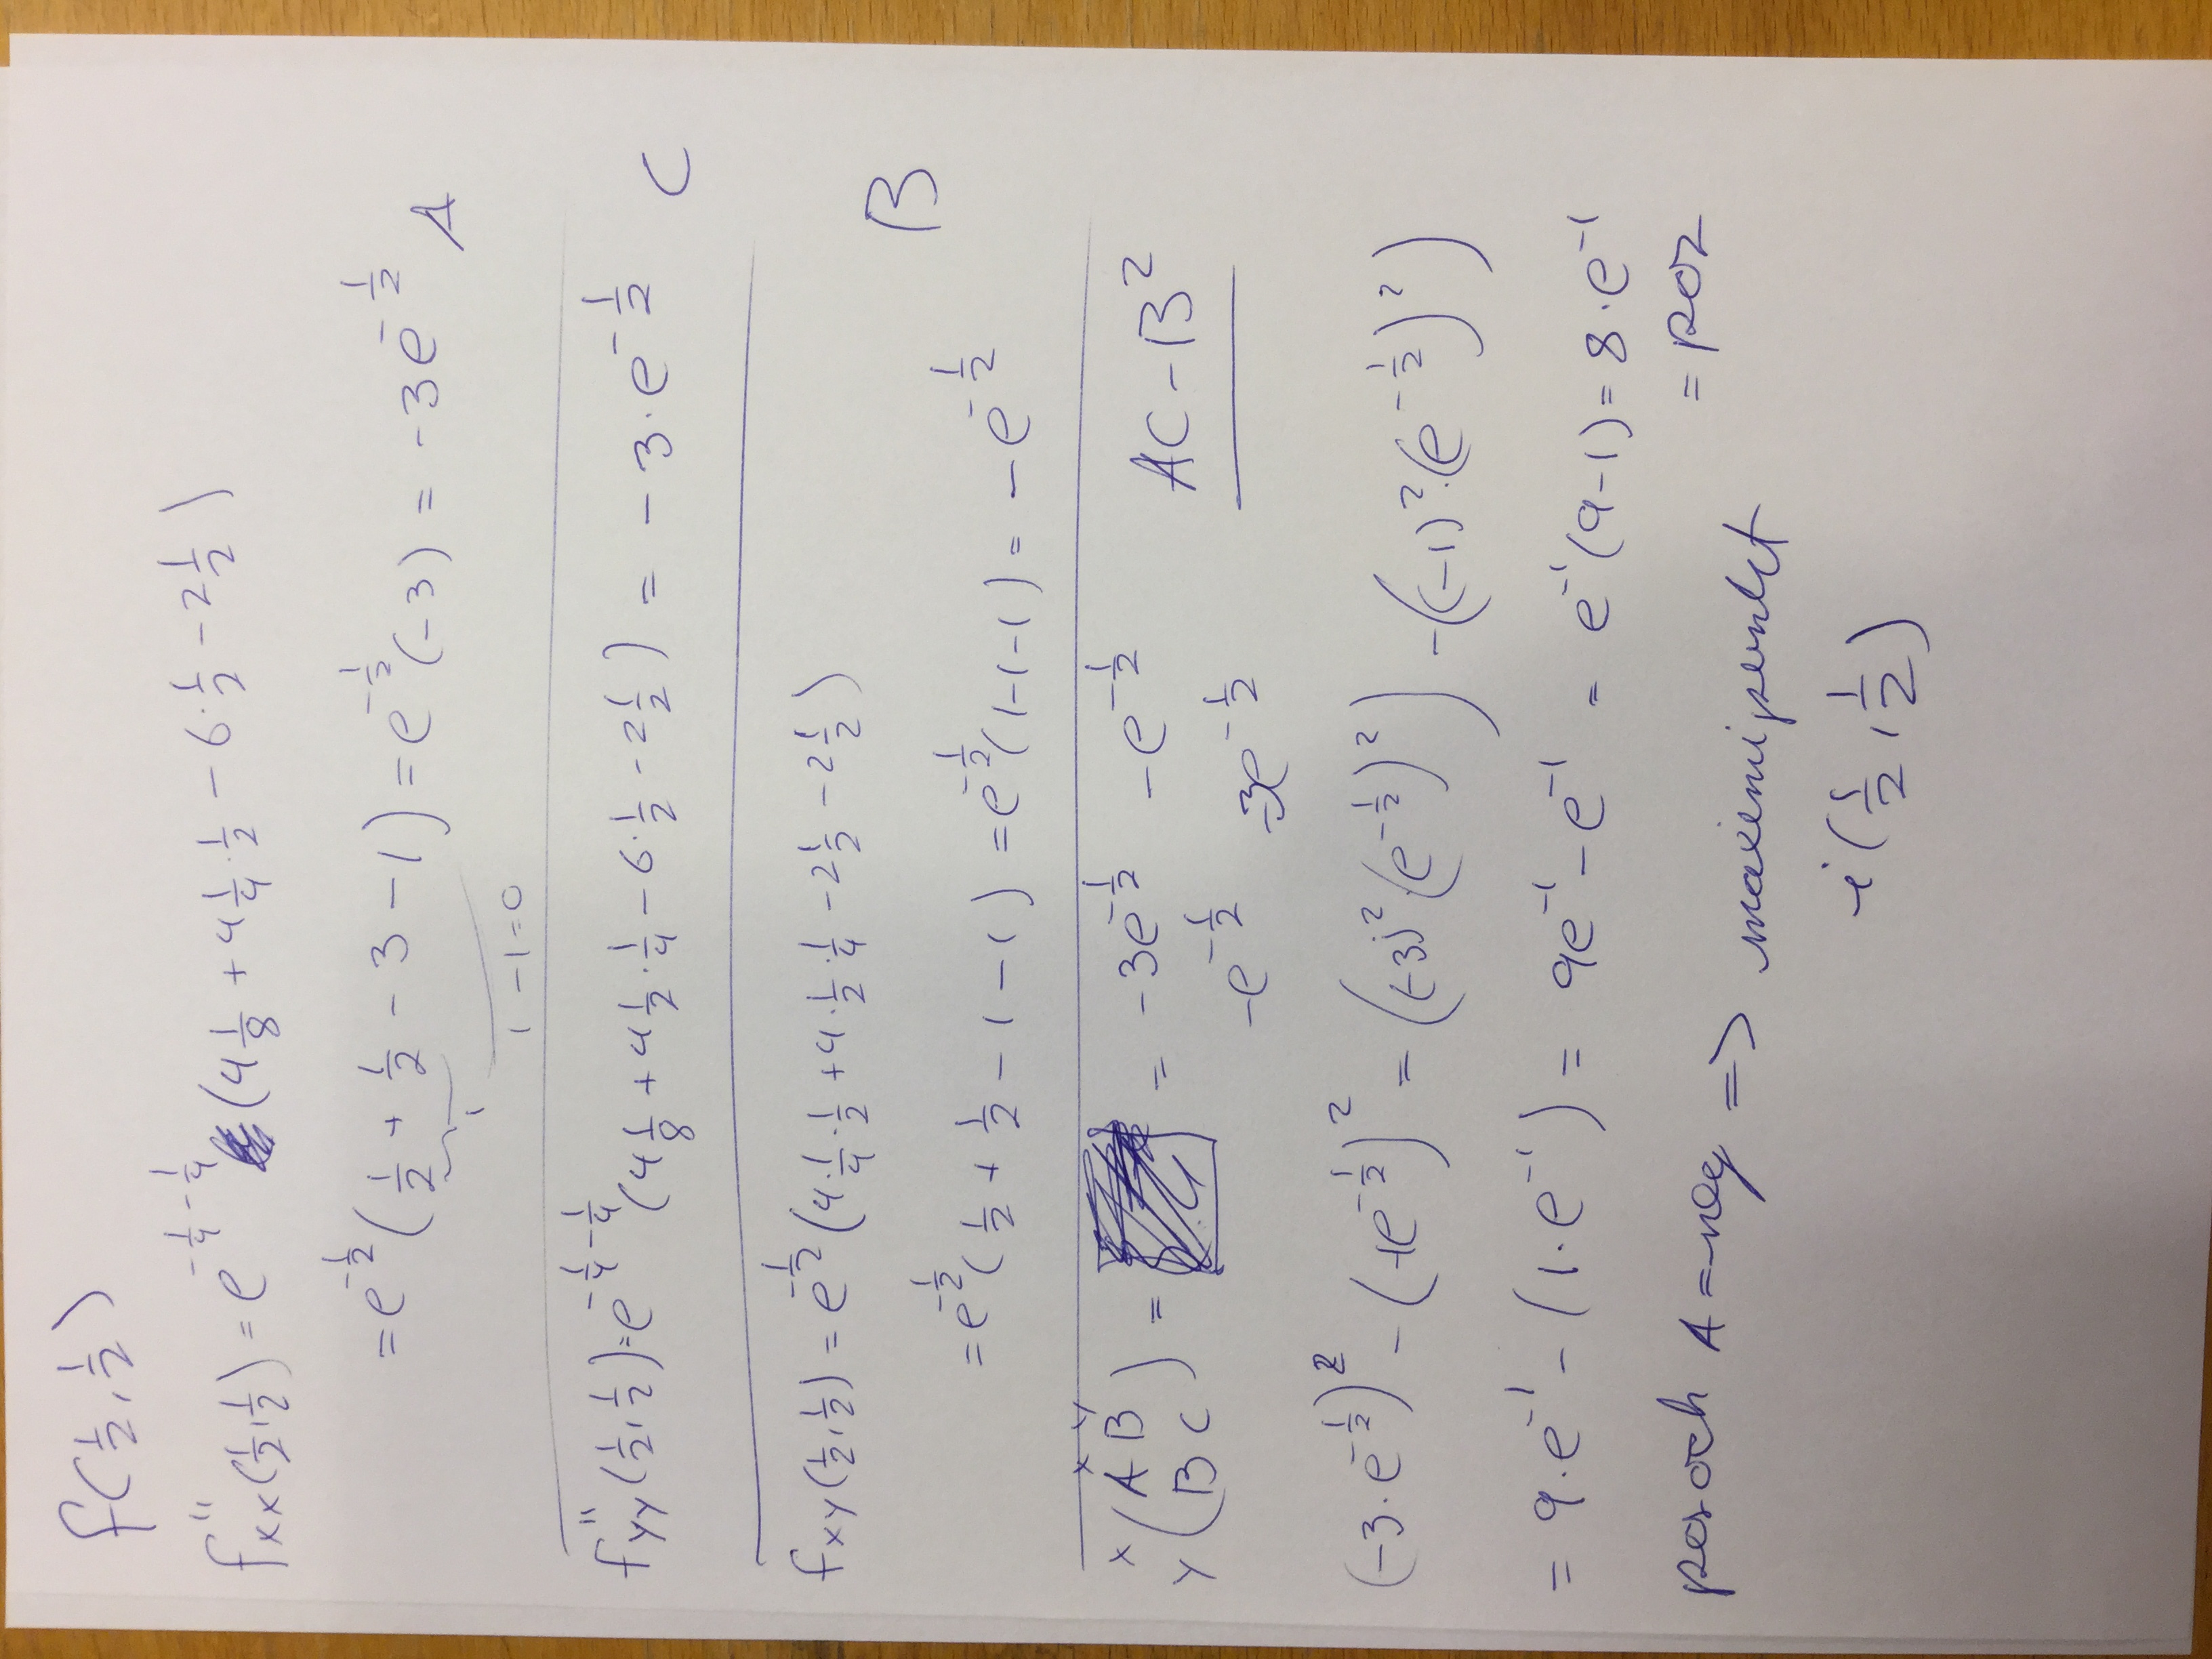 f(½, ½)
f''xx(½, ½) = e^(-¼-¼) (4⅛ + 4¼·½ - 6·½ - 2½)
= e^(-½) (½ + ½ - 3 - 1) = e^(-½)(-3) = -3e^(-½) A
1
1 - 1 = 0
f''yy(½, ½) = e^(-¼-¼) (4⅛ + 4½·¼ - 6·½ - 2½) = -3·e^(-½) C
fxy(½, ½) = e^(-½) (4·¼·½ + 4·½·¼ - 2½ - 2½)
B
= e^(-½) (½ + ½ - 1 - 1) = e^(-½)(1-1-1) = -e^(-½)
x y
x (A B) = = -3e^(-½) -e^(-½) AC - B²
y (B C) -e^(-½) -3e^(-½)
(-3·e^(-½))² - (-1e^(-½))² = ((-3)²·(e^(-½))²) - ((-1)²·(e^(-½))²)
= 9·e⁻¹ - (1·e⁻¹) = 9e⁻¹ - e⁻¹ = e⁻¹(9-1) = 8·e⁻¹
= poz
pos och A = neg => maximipunkt
i (½, ½)